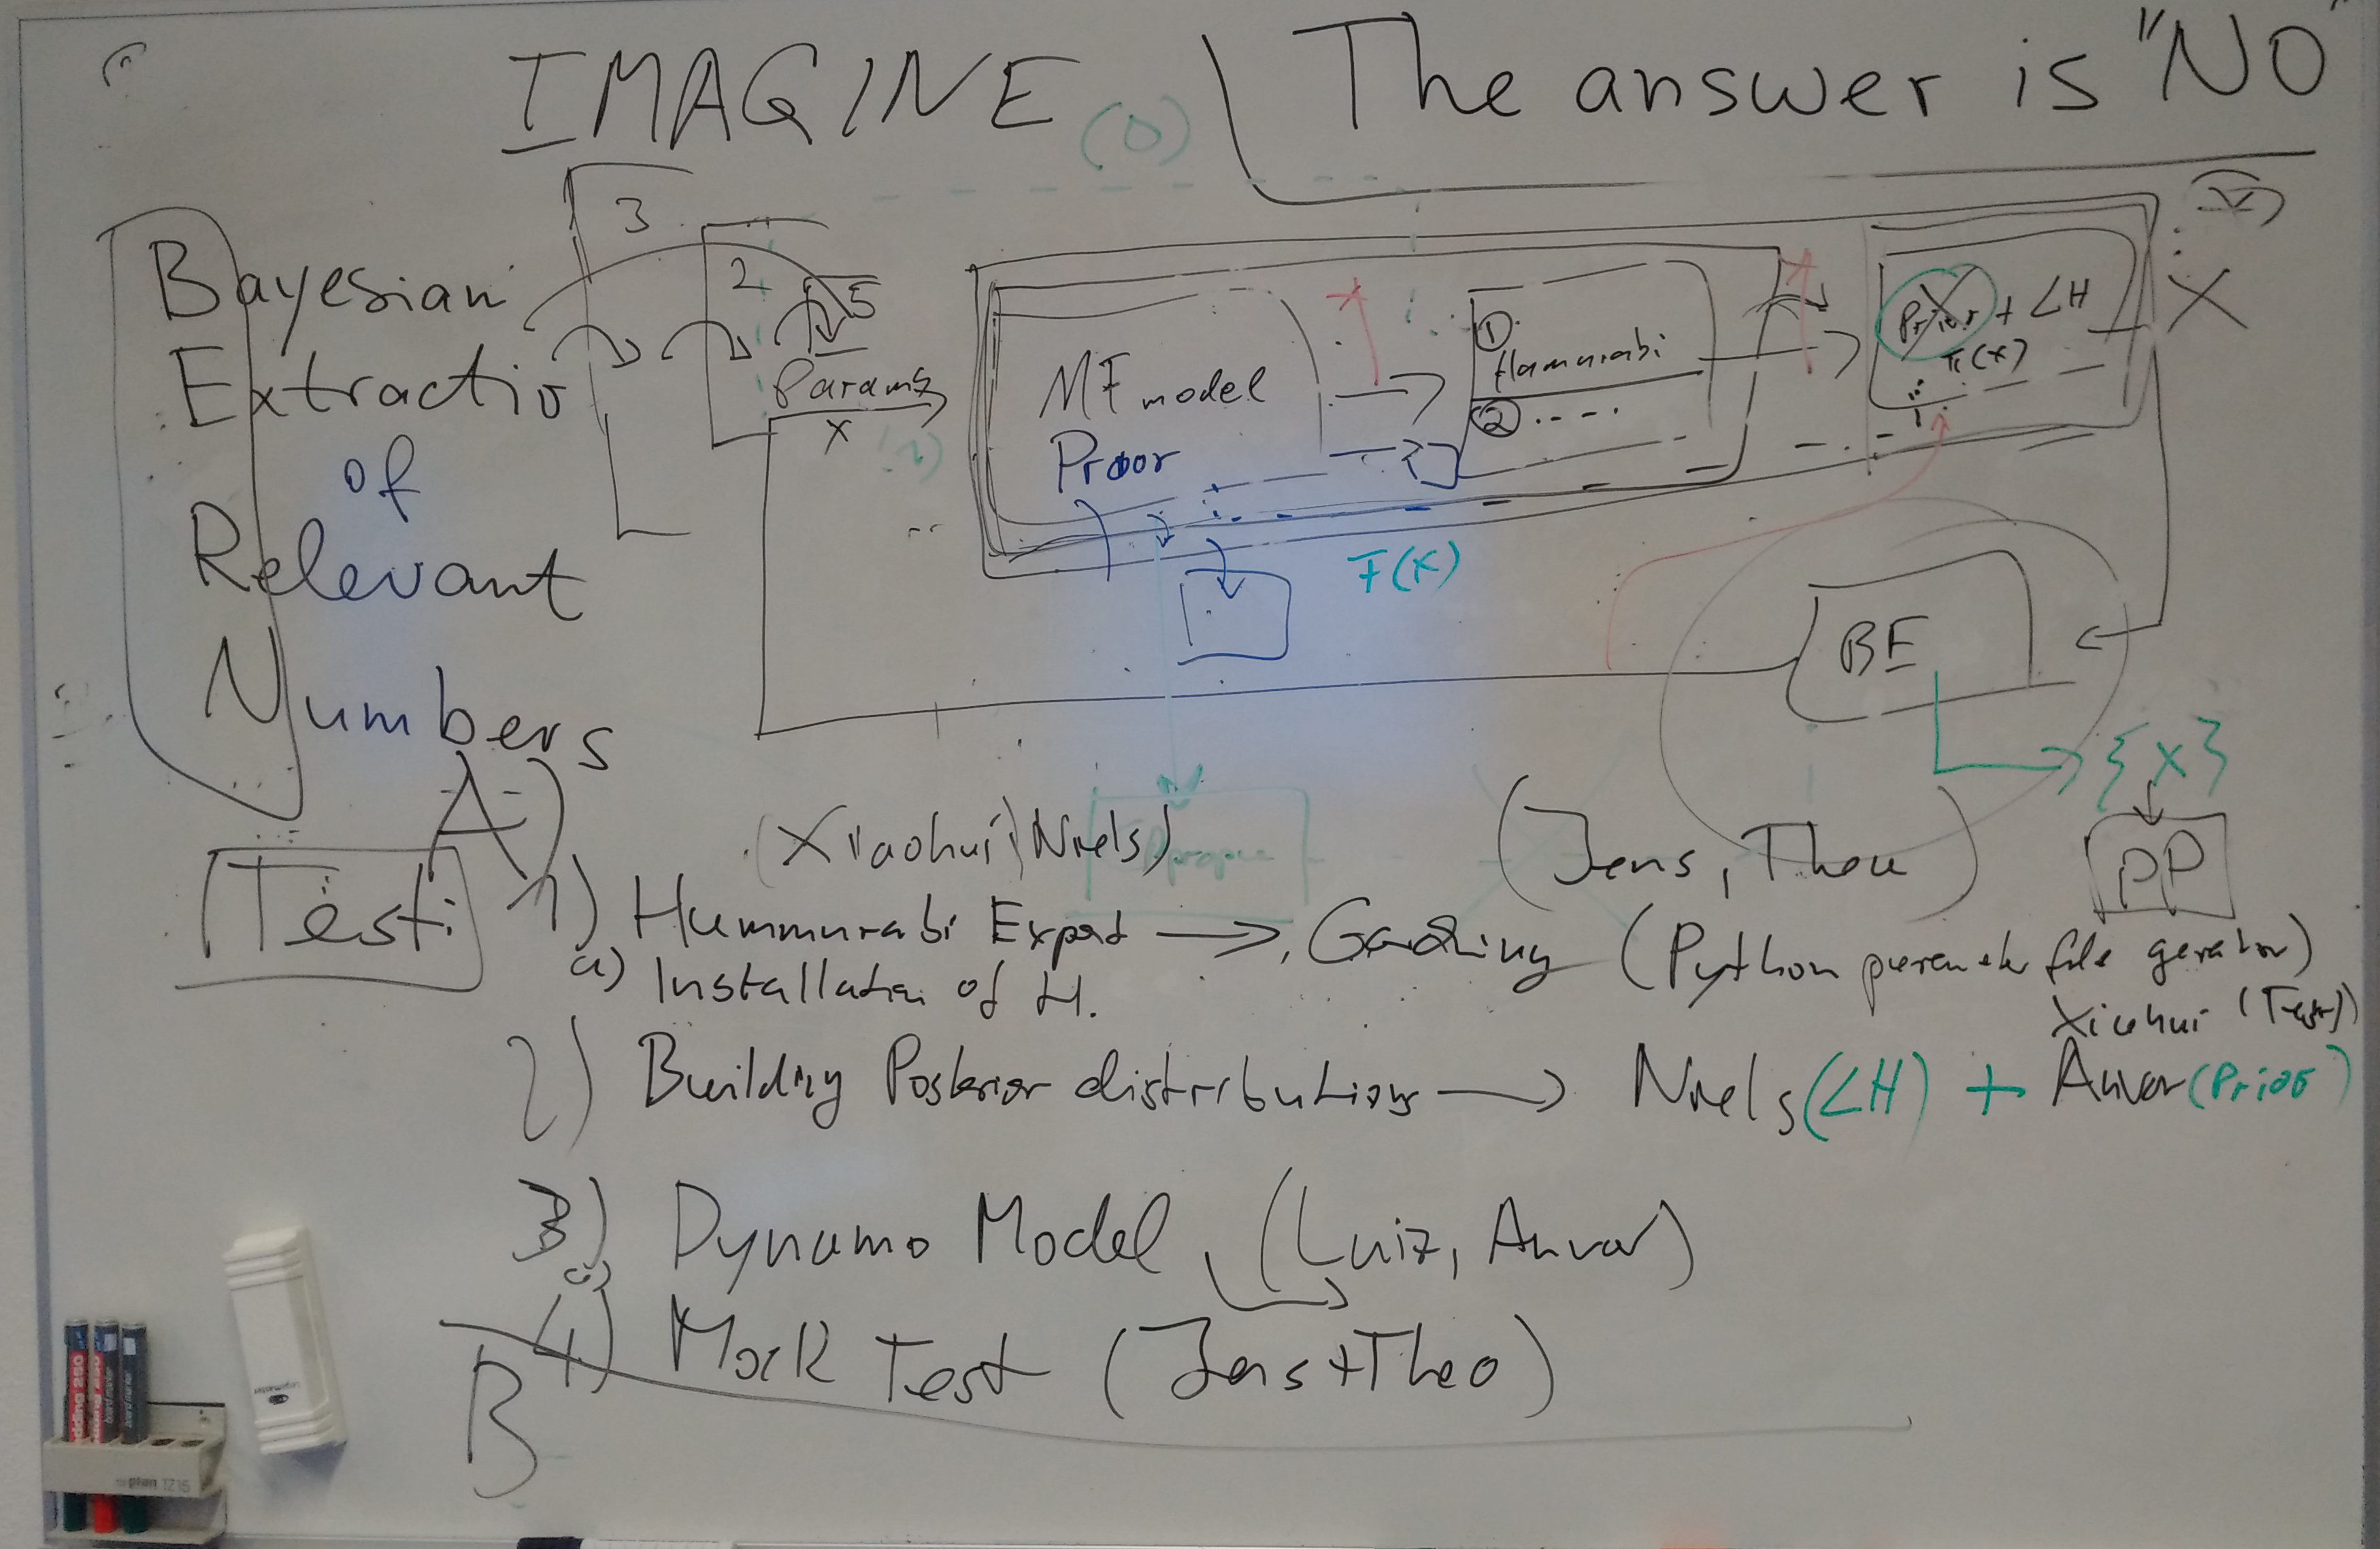 IMAGINE
The answer is "NO"
(0)
3
2
5
Bayesian
Extractio
of
Relevant
Numbers
Params
x
MF model
Prior
① Hammurabi
② ....
Prior + LH
π(x)
X
F(x)
BE
{x}
PP
A)
Test:
(Xiaohui, Niels)
(Jens, Theo)
1) Hummurabi Expert → Gadzing (Python
a) Installation of H.
Xiaohui (Test)
2) Building Posterior distributions → Niels (LH) + Anvar (Prior)
3) Dynamo Model (Luiz, Anvar)
4) Mock Test (Jens+Theo)
B
edding 250
boardmarker
plan 1Z15